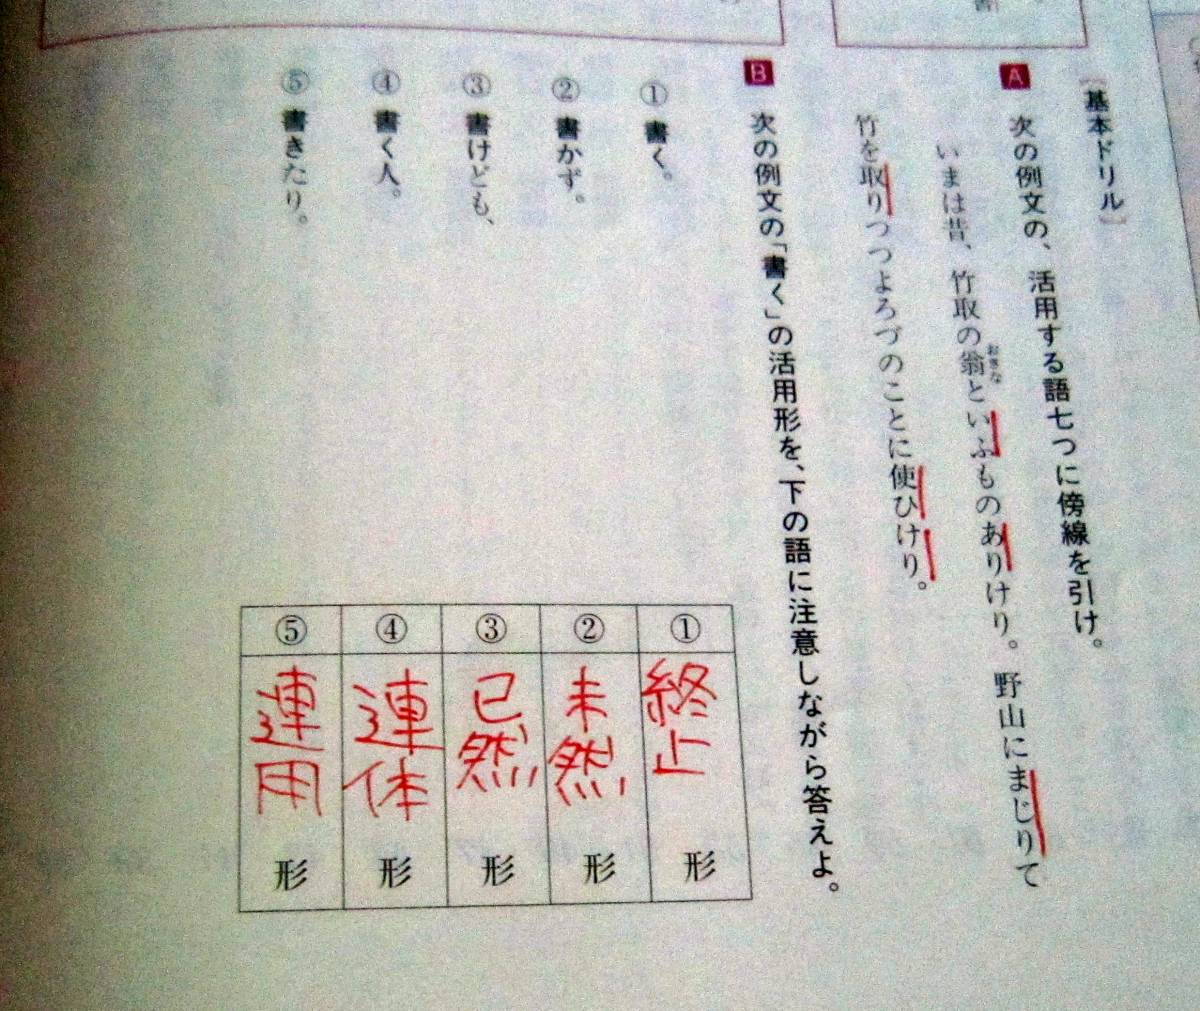 ［基本ドリル］
A 次の例文の、活用する語七つに傍線を引け。
いまは昔、竹取の翁といふものありけり。野山にまじりて
おきな
竹を取りつつよろづのことに使ひけり。
B 次の例文の「書く」の活用形を、下の語に注意しながら答えよ。
① 書く。
② 書かず。
③ 書けども、
④ 書く人。
⑤ 書きたり。
① 終止形
② 未然形
③ 已然形
④ 連体形
⑤ 連用形